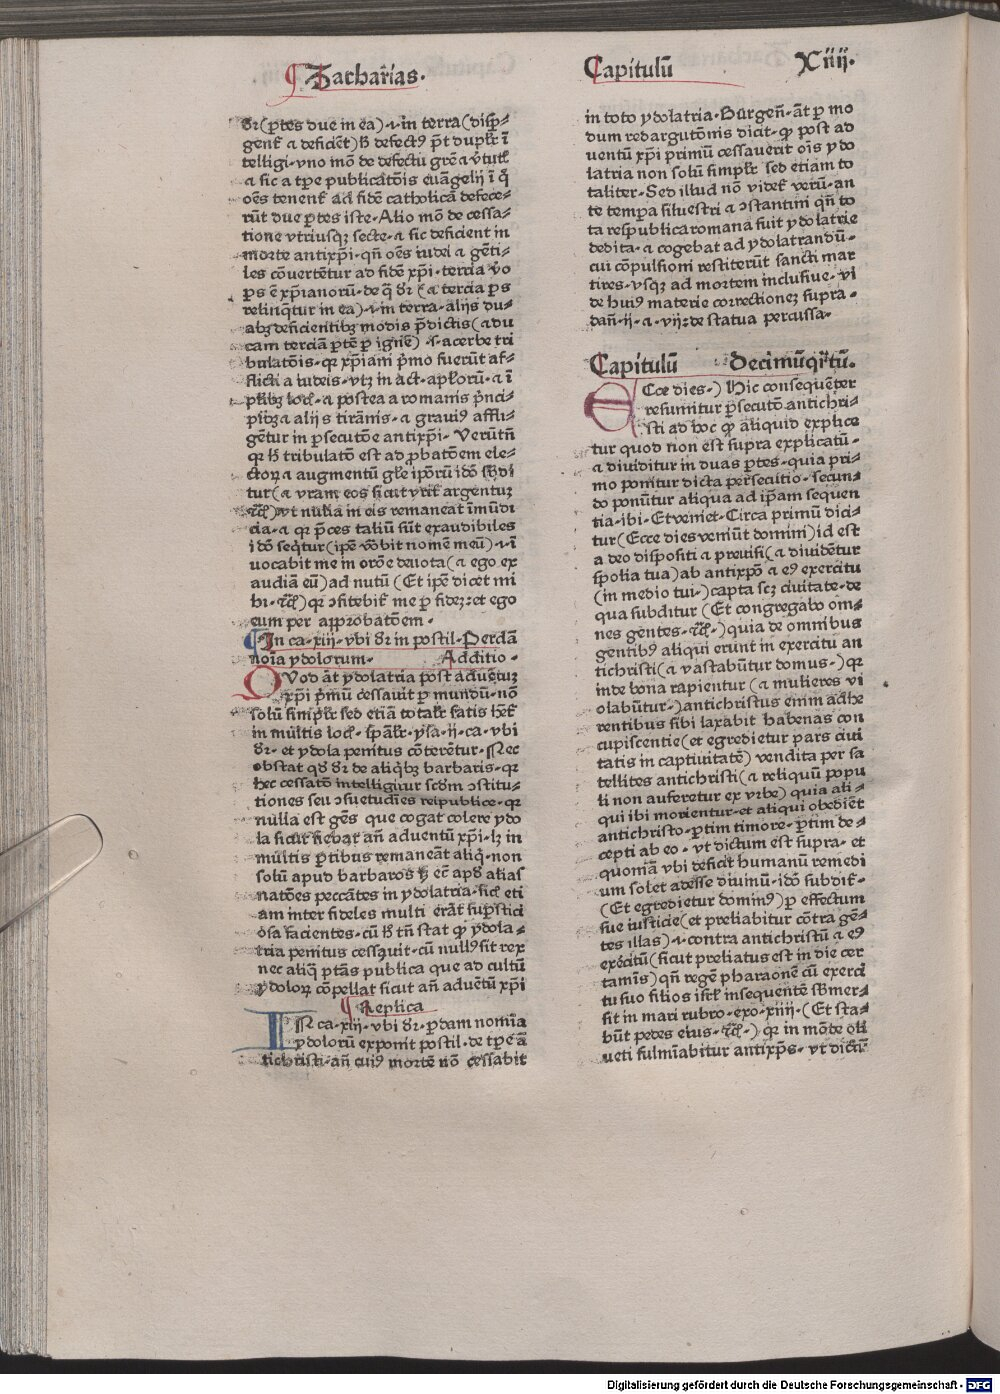 ¶ Zacharias.
Capitulū Xiiij.
dr̄(ꝑtes due in ea)·i·in terra(disꝑ⸗
gent᷑ ⁊ deficiēt)hͦ defectꝰ pn̄t duplr̄ ī
telligi·vno mō de defectu grēa v̓tutū
⁊ sic a tꝑe publicatōis euāgelij ī q̊
oēs tenent᷑ ad fidē catholicā defece⸗
rūt due ꝑtes iste·Alio mō de cessa⸗
tione vtriusqꝫ secte·⁊ sic deficient in
morte antixp̄i·qn̄ oēs iudei ⁊ gēti⸗
les cōuertētur ad fidē xp̄i·tercia v̓o
ꝑs ē xp̄ianorū·de q̄ dr̄(⁊ tercia ꝑs
relinq̄tur in ea)·i·in terra·alijs du⸗
abꝫ deficientibꝫ modis p̄dictis(⁊ du
cam terciā ꝑtē ꝑ ignē)·i·acerbe tri
bulatōis·qꝛ xp̄iani p̄mo fuerūt af⸗
flicti a iudeis·vtꝫ in act·apl̄orū·⁊ ī
pl̄ibꝫ loc̄·⁊ postea a romanis p̄nci⸗
pibꝫ ⁊ alijs tirānis·⁊ grauiꝰ affli⸗
gētur in ꝑsecutōe antixp̄i·Verūtn̄
qꝛ hͦ tribulatō est ad ꝓbatōem ele⸗
ctoꝝ ⁊ augmentū gl̄e ip̄orū idō sb̄di
tur(⁊ vram eos sicut vrit᷑ argentuꝫ
⁊c̄)vt nulla in eis remaneat īmūdi
cia·⁊ qꝛ p̄ces taliū sūt exaudibiles
idō seq̄tur(ipē vōbit nomē meū)·i·ī
uocabit me in orōe deuota(⁊ ego ex
audiā eū)ad nutū(Et ipē dicet mi
hi·⁊c̄)qꝛ ɔfitebit᷑ me ꝑ fideꝫ:et ego
eum per approbatōem·
¶In ca·xiij·vbi dr̄ in postil·Perdā
noīa ydolorum· Additio·
QVod āt ydolatria post aduētuꝫ
xp̄i p̄mū cessauit ꝑ mundū·nō
solū simplr̄ sed etiā totalr̄ satis hēt᷑
in multis loc̄·spālr̄·ysa·ij·ca·vbi
dr̄·et ydola penitus cōterētur·Nec
obstat qd̓ dr̄ de aliq̄bꝫ barbaris·qꝛ
hec cessatō intelligitur scd̓m ɔstitu⸗
tiones seu ɔsuetudīes reipublice·qꝛ
nulla est gēs que cogat colere ydo
la sicut fiebat an̄ aduentū xp̄i·lꝫ in
multis ꝑtibus remaneāt aliq̄·non
solū apud barbaros hͦ ec̄ apd̓ alias
natōes peccātes in ydolatria·sic̄ eti
am inter fideles multi erāt suꝑstici
ōsa facientes·cū hͦ tn̄ stat ꝙ ydola⸗
tria penitus cessauit·cū nullꝰ sit rex
nec aliq̄ ptās publica que ad cultū
ydoloꝝ cōpellat sicut an̄ aduētū xp̄i
¶ Replica
IN ca·xiij·vbi dr̄·ꝑdam nomīa
ydolorū exponit postil·de tꝑe ā
tichristi·an̄ cuiꝰ mortē nō cessabit
in toto ydolatria·Burgen̄·āt ꝑ mo
dum redargutōnis dicit·ꝙ post ad
uentū xp̄i primū cessauerit oīs ydo
latria non solū simplr̄ sed etiam to
taliter·Sed illud nō videt᷑ verū·an
te tempa siluestri ⁊ ɔstantini qn̄ to
ta respublica romana fuit ydolatrie
dedita·⁊ cogebat ad ydolatrandū·
cui cōpulsioni restiterūt sancti mar
tires·vsqꝫ ad mortem inclusiue·vi
de huiꝰ materie correctioneꝫ supra·
dan̄·ij·⁊·vij:de statua percussa·
Capitulū Decimūqr̄tū·
ECce dies·)Hic consequēter
resumitur ꝑsecutō antichri⸗
sti ad hoc ꝙ aliquid explice
tur quod non est supra explicatū·
⁊ diuiditur in duas ꝑtes·quia pri⸗
mo ponitur dicta persecutio·secun⸗
do ponūtur aliqua ad ip̄am sequen
tia·ibi·Et veniet·Circa primū dici⸗
tur(Ecce dies veniūt domini)id est
a deo dispositi ⁊ preuisi(⁊ diuidētur
spolia tua)ab antixpō ⁊ eꝰ exercitu
(in medio tui·)capta scꝫ ciuitate·de
qua subditur(Et congregabo om⸗
nes gentes·⁊c̄·)quia de omnibus
gentibꝰ aliqui erunt in exercitu an
tichristi(⁊ vastabūtur domus·)qꝛ
inde bona rapientur(⁊ mulieres vi
olabūtur·)antichristus enim adhe
rentibus sibi laxabit habenas con
cupiscentie(et egredietur pars ciui
tatis in captiuitatē)vendita per sa
tellites antichristi(⁊ reliquū popu
li non auferetur ex vrbe)quia ali⸗
qui ibi morientur·et aliqui obediēt
antichristo·ꝑtim timore·ꝑtim de⸗
cepti ab eo·vt dictum est supra·et
quoniā vbi deficit humanū remedi
um solet adesse diuinū·idō subdit᷑·
(Et egredietur dominꝰ)ꝑ effectum
sue iusticie(et preliabitur cōtra gē⸗
tes illas)·i·contra antichristū ⁊ eꝰ
exercitū(sicut preliatus est in die cer
tamīs)qn̄ regē pharaonē cū exerci
tu suo filios isrl̄ insequentē sb̄mer⸗
sit in mari rubro·exo·xiiij·(Et sta⸗
būt pedes eius·⁊c̄·)qꝛ in mōte oli
ueti fulmīabitur antixp̄s·vt dictū
Digitalisierung gefördert durch die Deutsche Forschungsgemeinschaft - DFG